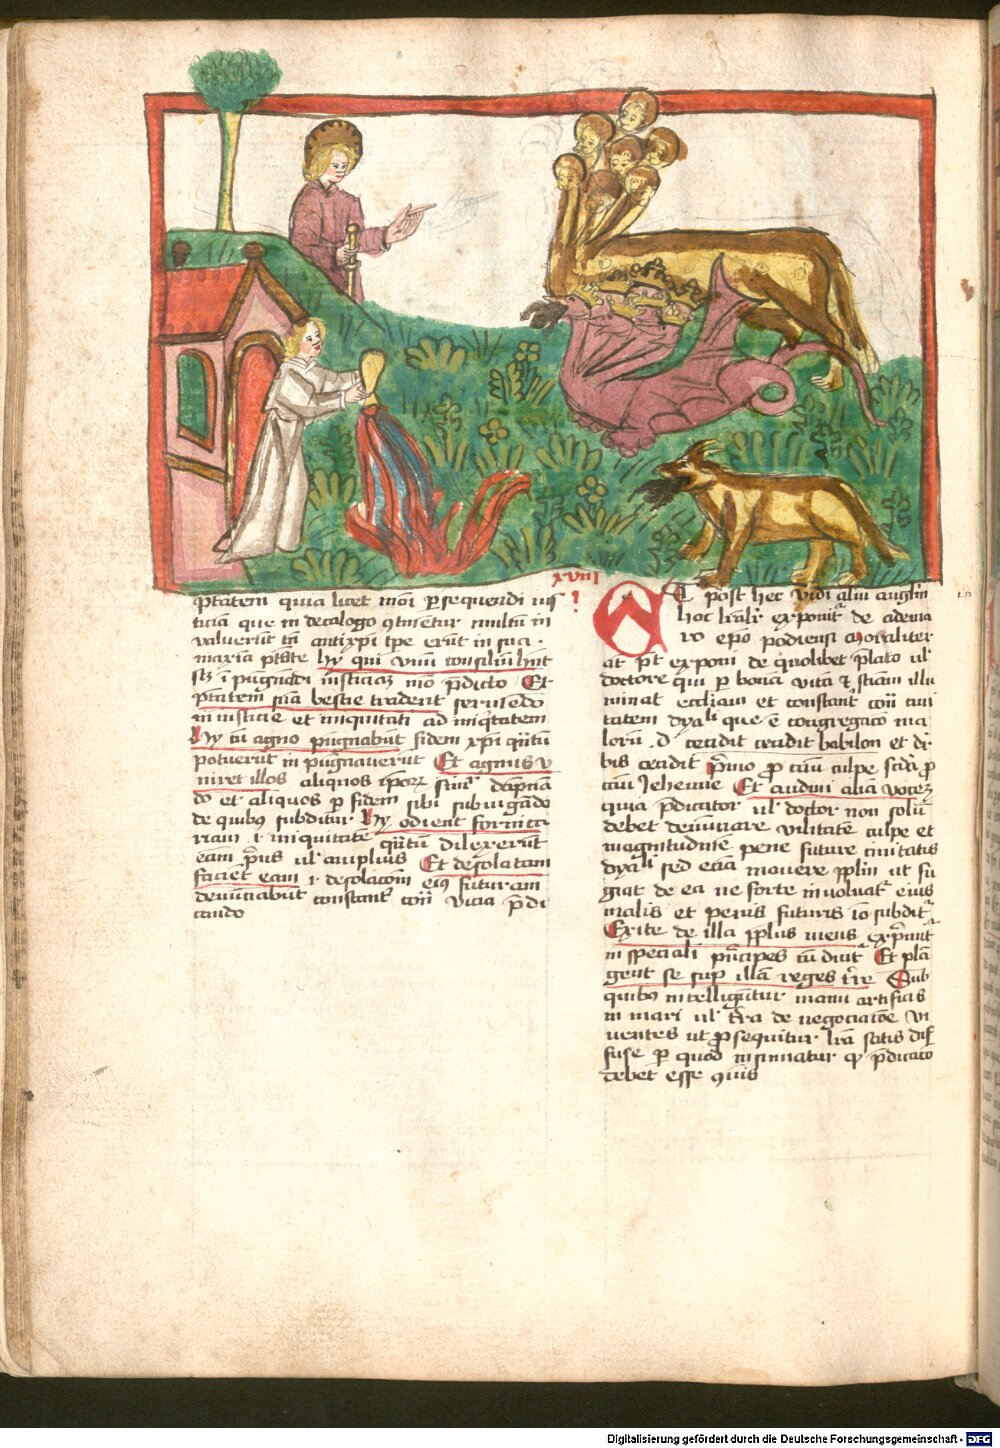 ptatem quia licet moi psequendi iusticiam
ticiam que in decalogo 9tinentur multum in
valuerunt tn antixpi tpe erunt in sua
maxia ptate hy qui vnu consiliu hnt
sz i pugnadi iusticiaz mo pdicto Et
ptatem sua bestie tradent seruiendo
iniusticie et iniquitati ad iniqtatem
Hy cu agno pugnabut fidem xpi qntu
potuerut inpugnauerut Et agnus v
niret illos aliquos ipoz simul dampna
do et aliquos p fidem sibi subiugando
de quibus subditur Hy odient fornica
riam i iniquitate qntu dilexerut
eam prius ul amplius Et desolatam
faciet eam i desolacom eius futuram
denunciabunt constant con vicia pdi
cando
xviii
Et post hec vidi aliu anglm
hoc lralr exponit de adema
ro epo podiensi Moraliter
at pt exponi de quolibet plato ul
doctore qui p bona vita et sciam illu
minat eccliam et constant con ciui
tatem dyali que e congregaco ma
lorum d cecidit cecidit babilon et di
bis cecidit primo p cam culpe scda p
cam Jehenne Et audiui alia vocez
quia pdicator ul doctor non solu
debet denunciare vilitate culpe et
magnitudine pene future ciuitatis
dyali sed ecia mouere pplm ut fu
giat de ea ne forte inuoluat eius
malis et penis futuris io subdit
Exite de illa pplus meus exprimit
in speciali principes cu dicit Et plan
gent se sup illam reges tre Sub
quibus intelliguntur manu artifices
in mari ul tra de negociacoe vi
uentes ut prosequitur lra satis dif
fuse p quod insinuatur q pdicato
debet esse 9muis
Digitalisierung gefördert durch die Deutsche Forschungsgemeinschaft - DFG